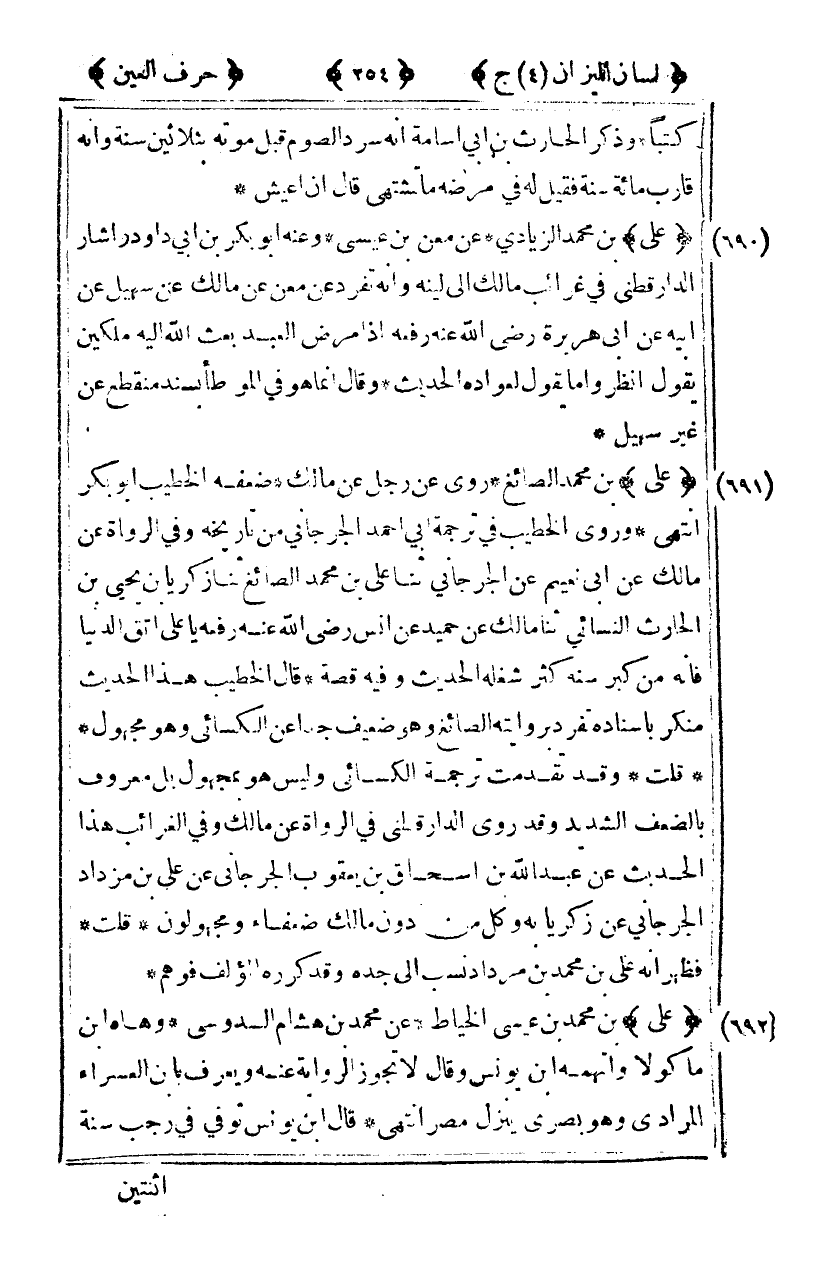 ﴿ لسان الميزان (٤) ج ﴾ ﴿ ٢٥٤ ﴾ ﴿ حرف العين ﴾
كتباً * وذكر الحارث بن ابي اسامة انه سرد الصوم قبل موته بثلاثين سنة وانه
قارب مائة سنة فقيل له في مرضه ما تشتهى قال ان اعيش *
(٦٩٠) ﴿ على ﴾ بن محمد الزيادي * عن معن بن عيسى * وعنه ابو بكر بن ابي داود راشار
الدارقطنى في غرائب مالك الى لينه وانه تفرد عن معن عن مالك عن سهيل عن
ابيه عن ابى هريرة رضى الله عنه رفعه اذا مرض العبد بعث الله اليه ملكين
يقول انظروا ما يقول لعواده الحديث * وقال انما هو في الموطأ بسند منقطع عن
غير سهيل *
(٦٩١) ﴿ على ﴾ بن محمد الصائغ * روى عن رجل عن مالك * ضعفه الخطيب ابو بكر
انتهى * وروى الخطيب في ترجمة ابي احمد الجرجاني من تاريخه وفي الرواة عن
مالك عن ابى نعيم عن الجرجاني ثنا على بن محمد الصائغ ثنا زكريا بن يحيى بن
الحارث النسائي ثنا مالك عن حميد عن انس رضى الله عنه رفعه يا على اتق الدنيا
فانه من كبر سنه كثر شغله الحديث وفيه قصة * قال الخطيب هذا الحديث
منكر باسناده تفرد بروايته الصائغ وهو ضعيف جدا عن الكسائى وهو مجهول *
* قلت * وقد تقدمت ترجمة الكسائى وليس هو بمجهول بل معروف
بالضعف الشديد وقد روى الدارقطنى في الرواة عن مالك وفي الغرائب هذا
الحديث عن عبد الله بن اسحاق بن يعقوب الجرجانى عن علي بن مزداد
الجرجاني عن زكريا به وكل من دون مالك ضعفاء ومجهولون * قلت *
فظهر انه على بن محمد بن مرداد نسب الى جده وقد كرره المؤلف فوهم *
(٦٩٢) ﴿ على ﴾ بن محمد بن عيسى الخياط * عن محمد بن هشام السدوسى * وهاه ابن
ماكولا واتهمه ابن يونس وقال لا تجوز الرواية عنه ويعرف بابن العسراء
المرادى وهو بصرى ينزل مصر انتهى * قال ابن يونس توفي في رجب سنة
اثنتين